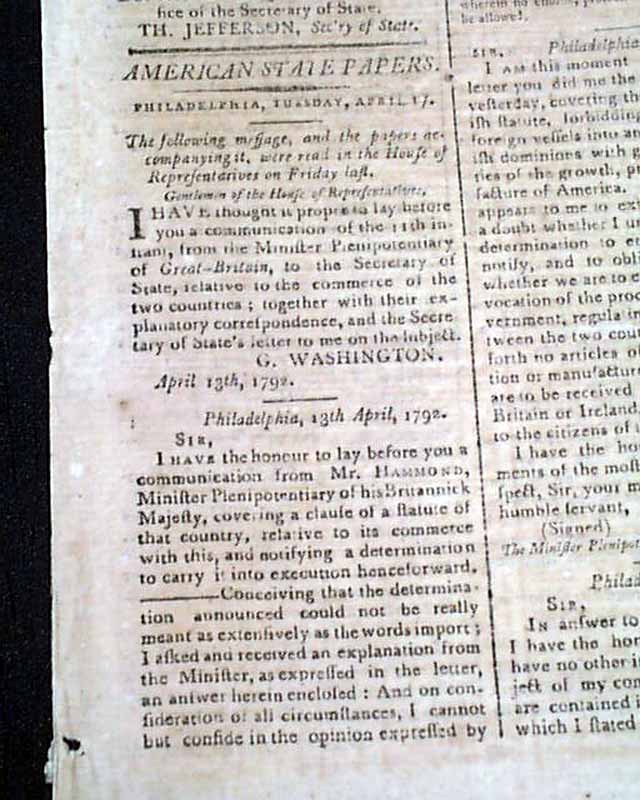 fice of the Secretary of State.
TH. JEFFERSON, Sec'ry of State.
AMERICAN STATE PAPERS.
PHILADELPHIA, TUESDAY, APRIL 17.
The following meſſage, and the papers ac-
companying it, were read in the Houſe of
Repreſentatives on Friday laſt.
Gentlemen of the Houſe of Repreſentatives,
I HAVE thought it proper to lay before
you a communication of the 11th in-
ſtant, from the Miniſter Plenipotentiary
of Great-Britain, to the Secretary of
State, relative to the commerce of the
two countries; together with their ex-
planatory correſpondence, and the Secre-
tary of State's letter to me on the ſubject.
G. WASHINGTON.
April 13th, 1792.
Philadelphia, 13th April, 1792.
SIR,
I HAVE the honour to lay before you a
communication from Mr. HAMMOND,
Miniſter Plenipotentiary of his Britannick
Majeſty, covering a clauſe of a ſtatute of
that country, relative to its commerce
with this, and notifying a determination
to carry it into execution henceforward.
———Conceiving that the determina-
tion announced could not be really
meant as extenſively as the words import;
I aſked and received an explanation from
the Miniſter, as expreſſed in the letter,
an anſwer herein encloſed: And on con-
ſideration of all circumſtances, I cannot
but confide in the opinion expreſſed by
be allowed.
SIR, Philadelphia
I AM this moment
letter you did me the
yeſterday, covering th
iſh ſtatute, forbidding
foreign veſſels into an
iſh dominions with g
ties of the growth, pr
facture of America.
appears to me to ex
a doubt whether I un
determination to e
notify, and to obli
whether we are to c
vocation of the proc
vernment, regula in
tween the two cou
forth no articles o
tion or manufactur
are to be received
Britain or Ireland,
to the citizens of
I have the ho
ments of the moſt
ſpect, Sir, your m
humble ſervant,
(Signed)
The Miniſter Plenipot
Philad
SIR,
IN anſwer to
I have the hon
have no other in
ject of my com
are contained i
which I ſtated